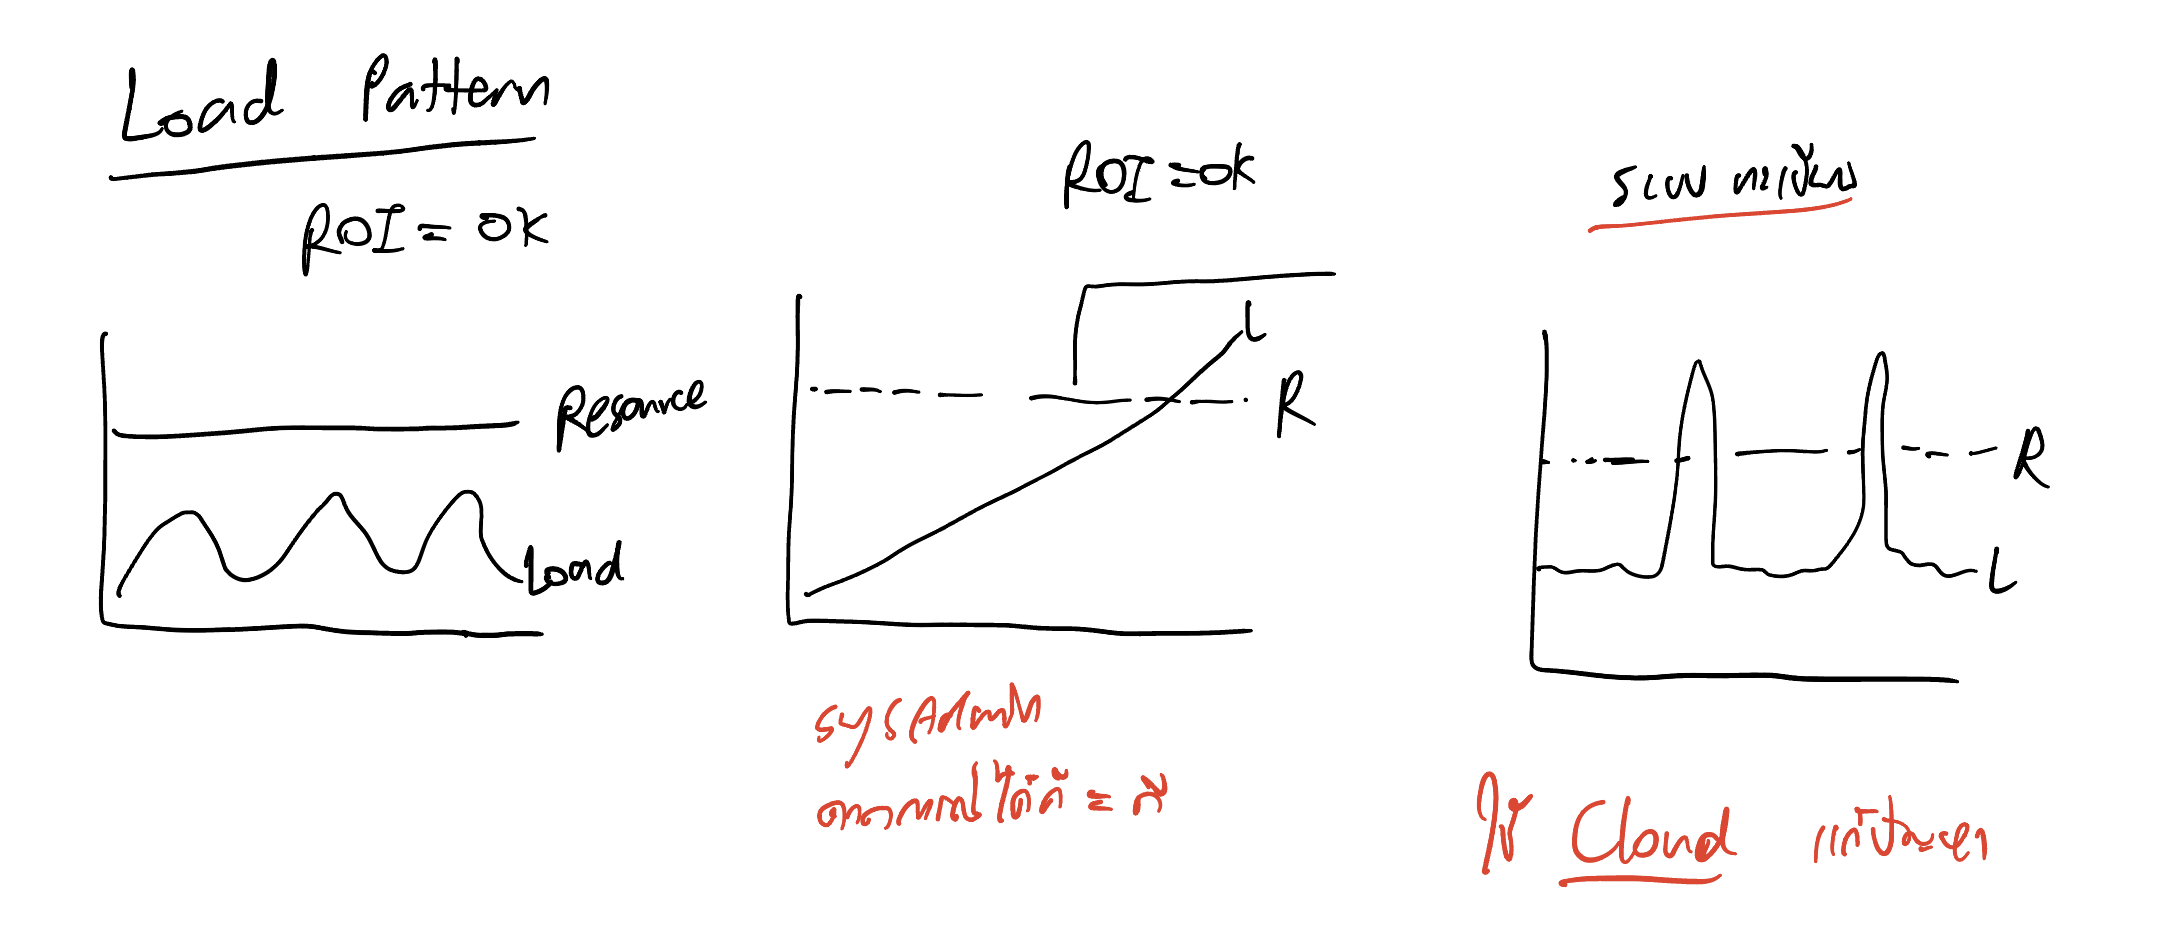 Load Pattern
ROI = OK
Resource
Load
ROI = OK
L
R
SysAdmin
คาดการณ์ได้ดี = ดี
ระบบทะเบียน
R
L
ใช้ Cloud แก้ปัญหา